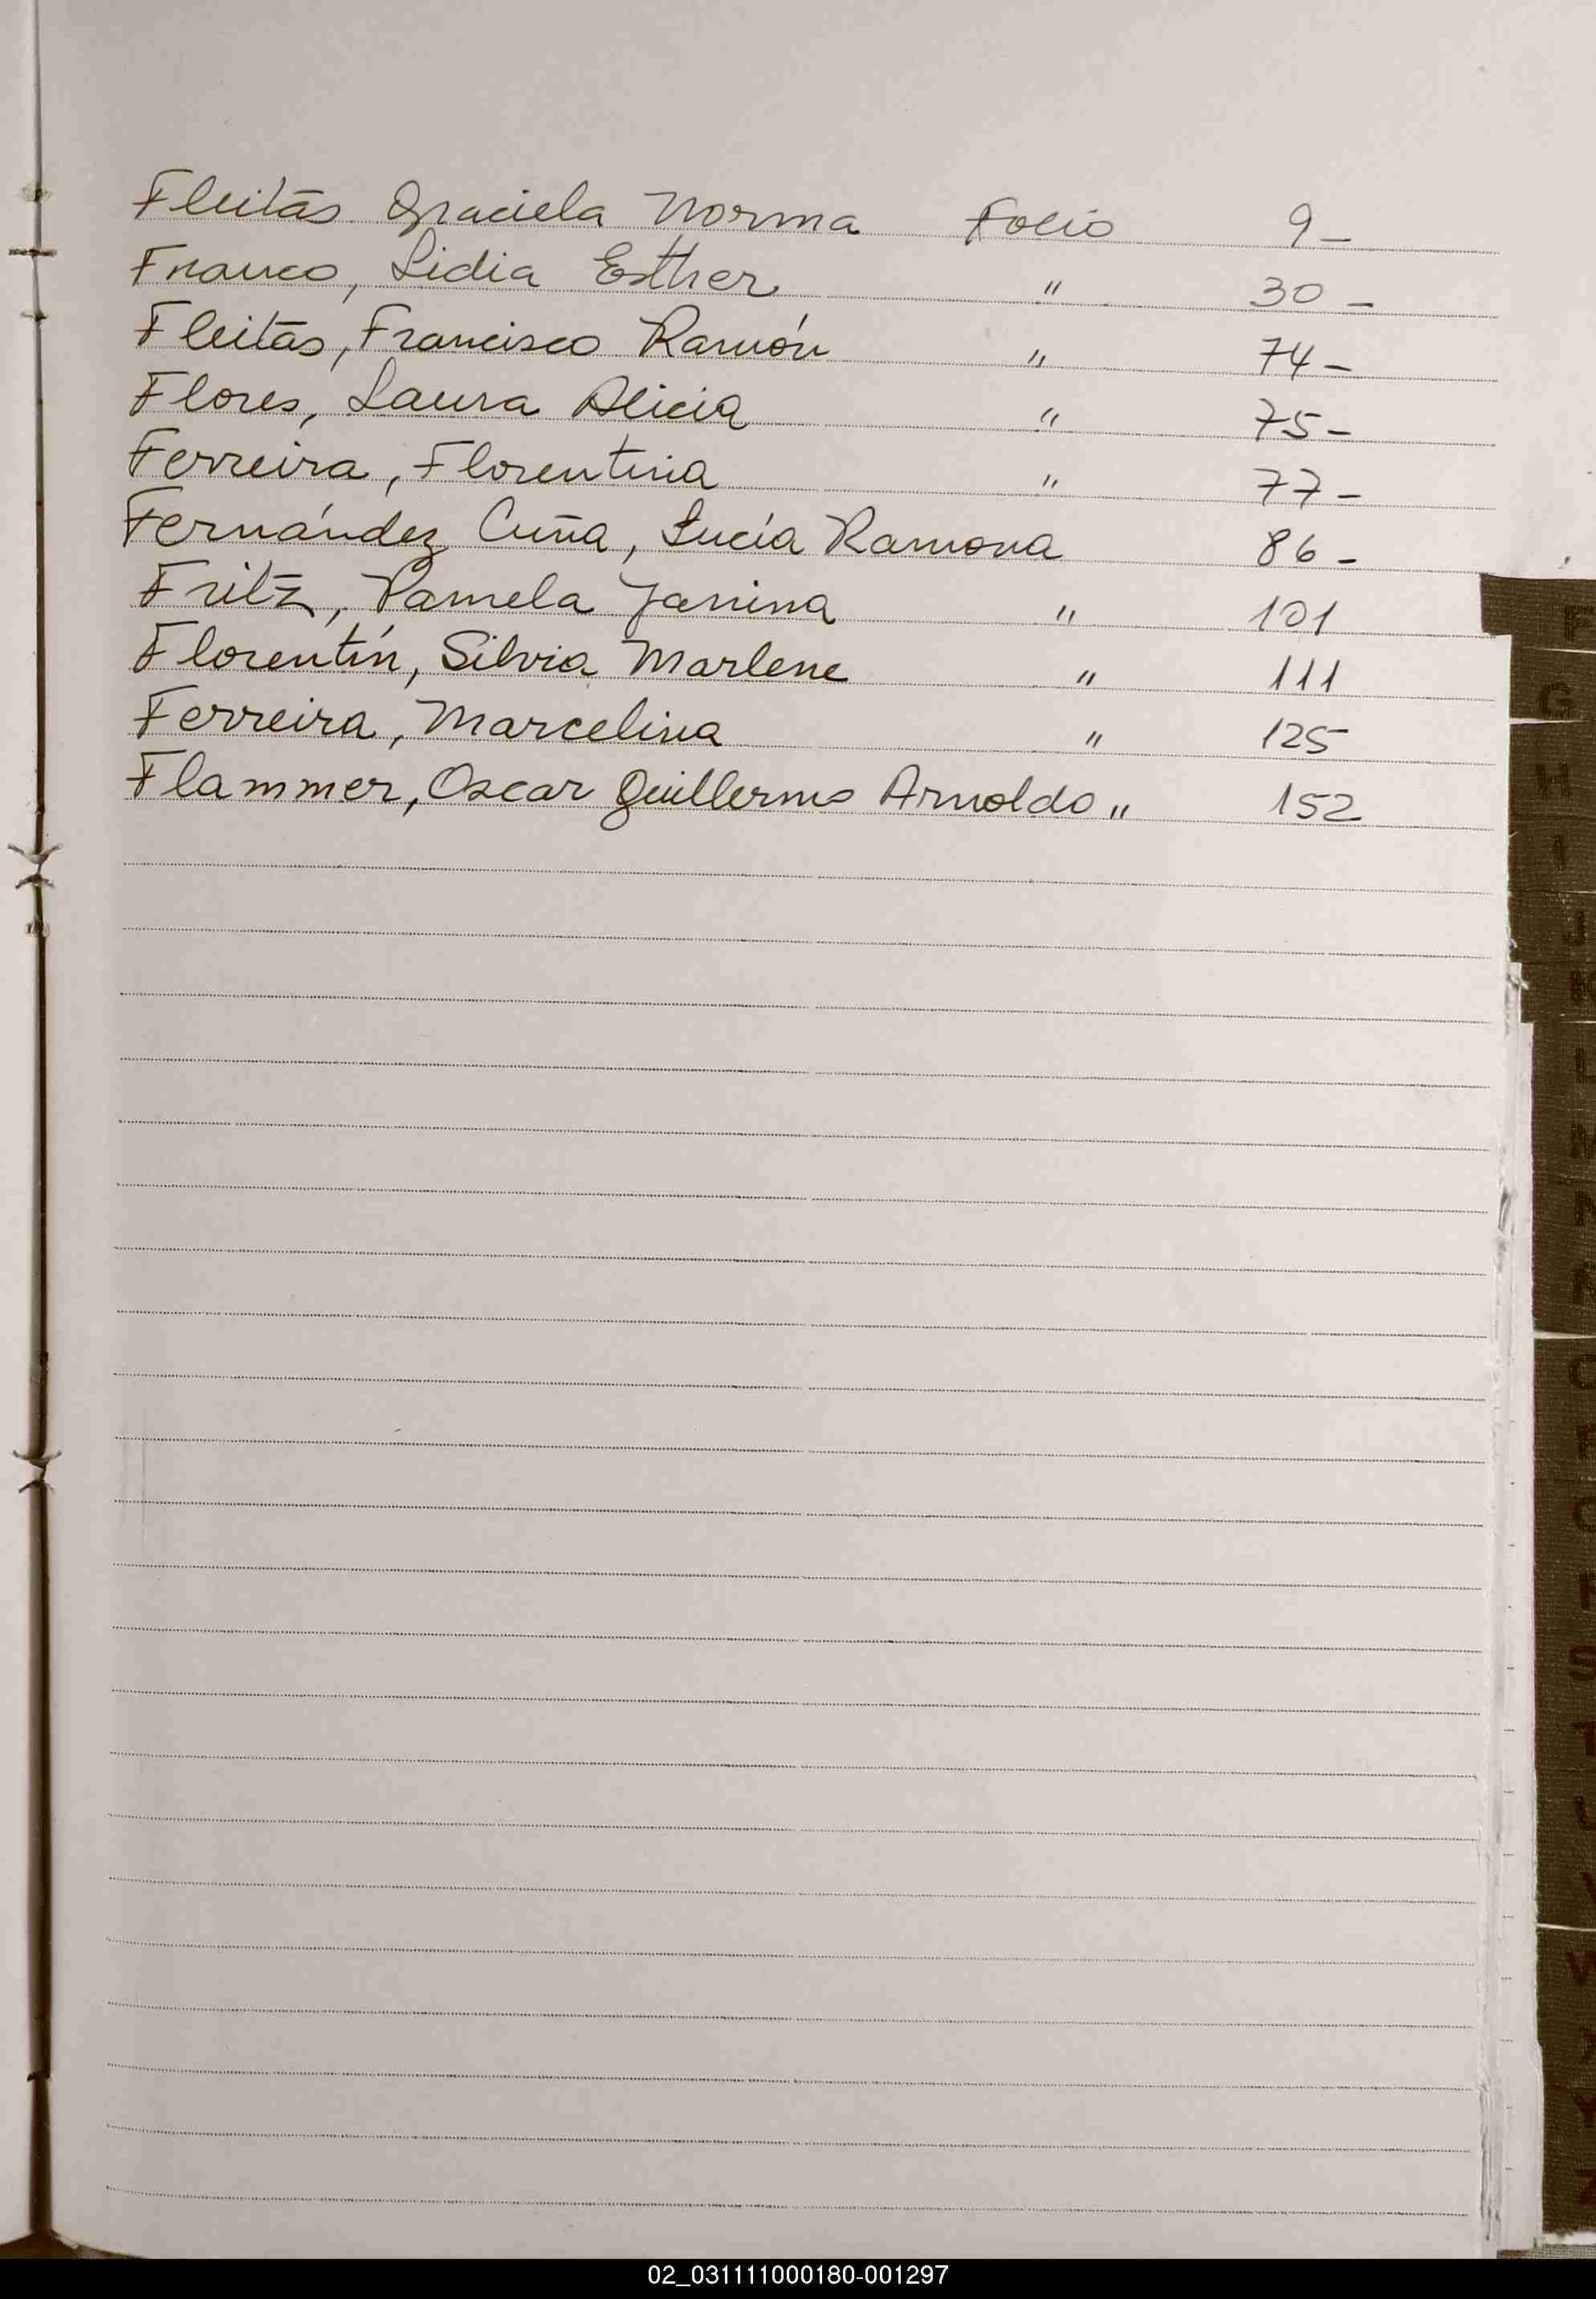 Fleitas Graciela Norma Folio 9 -
Franco, Lidia Esther " 30 -
Fleitas, Francisco Ramón " 74 -
Flores, Laura Alicia " 75 -
Ferreira, Florentina " 77 -
Fernández Cuña, Lucía Ramona 86 -
Fritz, Pamela Janina " 101
Florentín, Silvia Marlene " 111
Ferreira, Marcelina " 125
Flammer, Oscar Guillermo Arnoldo " 152
F
G
H
I
J
02_031111000180-001297